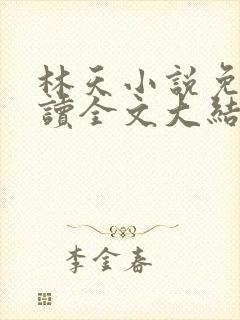 林天小說免
讀全文大結
李金春